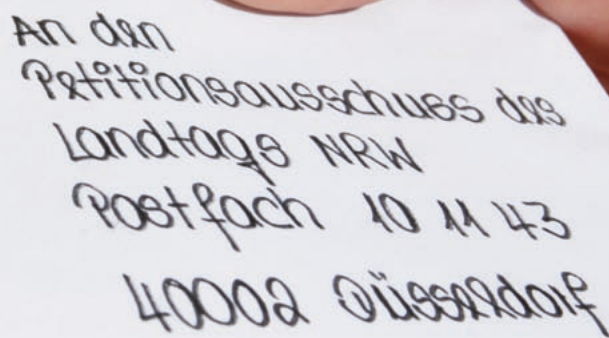 An den
Petitionsausschuss des
Landtags NRW
Postfach 10 11 43
40002 Düsseldorf